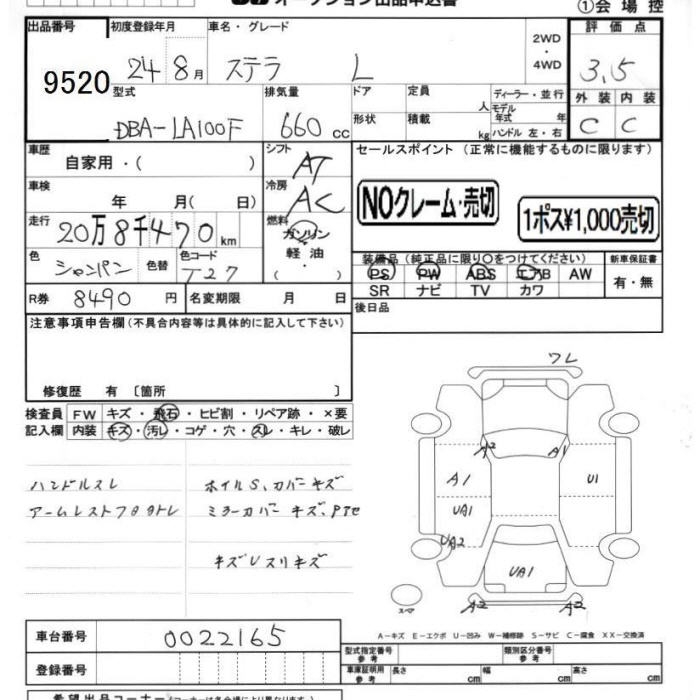 オークション出品申込書
①会場控
出品番号 初度登録年月 車名・グレード 2WD・4WD 評価点
9520 24 8月 ステラ L 3,5
型式 排気量 ドア 定員 人 ディーラー・並行 外装 内装
DBA-LA100F 660cc 形状 積載 kg モデル年式 年 ハンドル 左・右 C C
車歴 シフト セールスポイント (正常に機能するものに限ります)
自家用・( ) AT
車検 冷房 NOクレーム・売切
年 月( 日) AC 1ポス¥1,000売切
走行 燃料
20万8千470km ガソリン・軽油・( )
色 色替 色コード 装備品(純正品に限り○をつけてください) 新車保証書
シャンパン T27 PS PW ABS エアB AW 有・無
SR ナビ TV カワ
R券 8490円 名変期限 月 日 後日品
注意事項申告欄(不具合内容等は具体的に記入して下さい)
修復歴 有 〔箇所 〕
検査員 FW キズ・飛石・ヒビ割・リペア跡・×要
記入欄 内装 キズ・汚レ・コゲ・穴・スレ・キレ・破レ
ハンドルスレ ホイルS、カバーキズ
アームレストフタタトレ ミラーカバーキズ、
キズUスリキズ
ワレ
A2 A1
A1 U1
UA1
UA2
UA1
スペア A2 A2
A-キズ E-エクボ U-凹み W-補修跡 S-サビ C-腐食 XX-交換済
車台番号 0022165
型式指定番号 参考 類別区分番号 参考
登録番号 車庫証明用 参考 長さ cm 幅 cm 高さ cm
希望出品コーナー(コーナーは各会場により異なります)